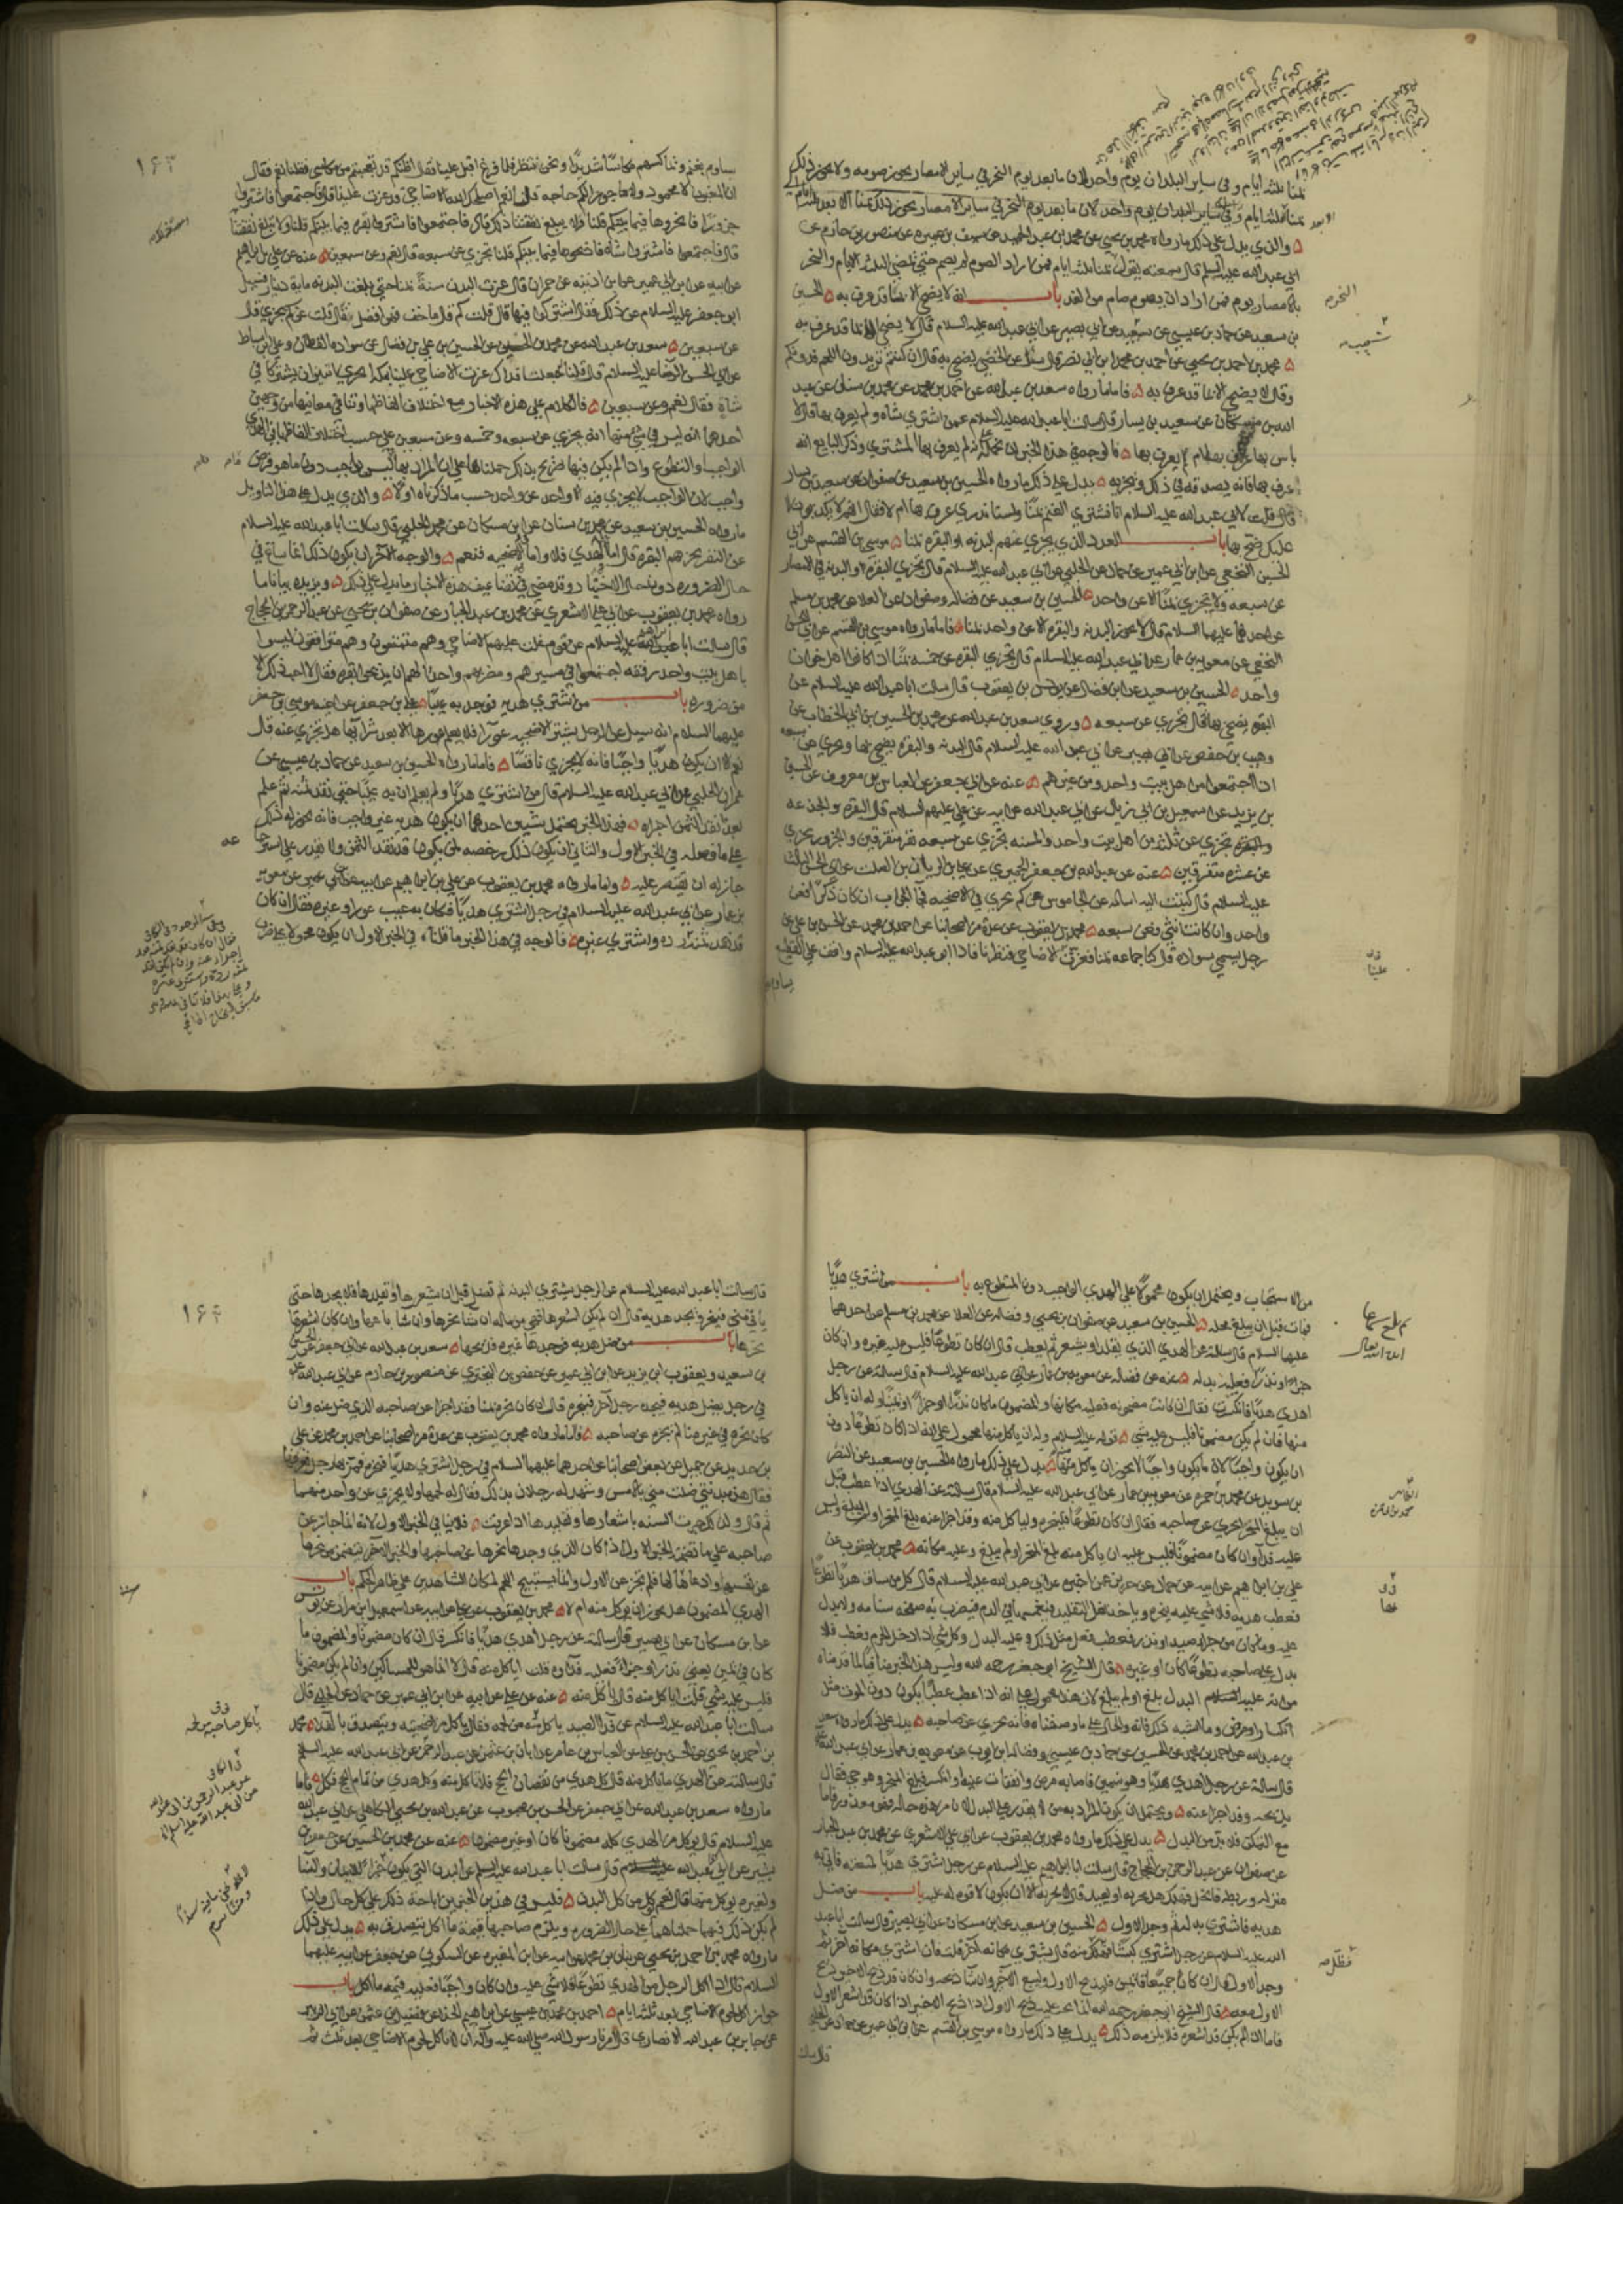 بمنا ثلثه ايام وفي ساير البلدان يوم واحد لان ما بعد يوم النحر في ساير الامصار يجوز صومه ولا يجوز ذلك
والذي يدل علي ذلك ما رواه محمد بن يحيي عن محمد بن عبد الحميد عن سيف بن عميره عن منصور بن حازم عن
ابي عبد الله عليه السلم قال سمعته يقول بمنا ثلثه ايام فمن اراد الصوم لم يصم حتي تمضي الثلثه الايام والنحر
بالامصار يوم فمن اراد ان يصوم صام من الغد باب انه لا يضحي الا بما قد عرف به الحسين
بن سعيد عن حماد بن عيسي عن شعيب عن ابي بصير عن ابي عبد الله عليه السلام قال لا يضحي الا بما قد عرف به
محمد بن احمد بن يحيي عن احمد بن محمد بن ابي نصر قال سئل عن الخصي يضحي به قال ان كنتم تريدون اللحم فدونكم
وقال لا يضحي الا بما قد عرف به فاما ما رواه سعد بن عبد الله عن احمد بن محمد عن محمد بن سنان عن عبد
الله بن مسكان عن سعيد بن يسار قال سالت ابا عبد الله عليه السلام عمن اشتري شاه ولم يعرف بها قال لا
باس بها عرف بها ام لم يعرف بها فالوجه في هذا الخبر ان نحمله علي انه لم يعرف بها المشتري وذكر البايع انه
عرف بها فانه يصدقه في ذلك ويجزيه يدل علي ذلك ما رواه الحسين بن سعيد عن صفوان عن سعيد بن يسار
قال قلت لابي عبد الله عليه السلام انا نشتري الغنم بمنا ولسنا ندري عرف بها ام لا فقال انهم لا يكذبون لا
عليك ضح بها باب العدد الذي يجزي عنهم البدنه او البقره بمنا موسي بن القسم عن ابي
الحسين النخعي عن ابن ابي عمير عن حماد عن الحلبي عن ابي عبد الله عليه السلام قال تجزي البقره او البدنه في الامصار
عن سبعه ولا تجزي بمنا الا عن واحد الحسين بن سعيد عن فضاله وصفوان عن العلا عن محمد بن مسلم
عن احدهما عليهما السلام قال لا تجوز البدنه والبقره الا عن واحد بمنا فاما ما رواه موسي بن القسم عن ابي الحسين
النخعي عن معويه بن عمار عن ابي عبد الله عليه السلام قال تجزي البقره عن خمسه بمنا اذا كانوا اهل خوان
واحد الحسين بن سعيد عن ابن فضال عن يونس بن يعقوب قال سالت ابا عبد الله عليه السلام عن
البقره يضحي بها فقال تجزي عن سبعه وروي سعد بن عبد الله عن محمد بن الحسين بن ابي الخطاب عن
وهيب بن حفص عن ابي بصير عن ابي عبد الله عليه السلام قال البدنه والبقره يضحي بها وتجزي عن سبعه
اذا اجتمعوا من اهل بيت واحد ومن غيرهم عنه عن ابي جعفر عن العباس بن معروف عن الحسين
بن يزيد عن اسمعيل بن ابي زياد عن ابي عبد الله عن ابيه عن علي عليهم السلام قال البقره والجذعه
تجزي عن ثلثه من اهل بيت واحد والمسنه تجزي عن سبعه نفر متفرقين والجزور يجزي
عن عشره متفرقين عنه عن عبد الله بن جعفر الحميري عن علي بن الريان بن الصلت عن ابي الحسن الثالث
عليه السلام قال كتبت اليه اساله عن الجاموس عن كم يجزي في الاضحيه فجا الجواب ان كان ذكرا فعن
واحد وان كانت انثي فعن سبعه محمد بن يعقوب عن عده من اصحابنا عن احمد بن محمد عن الحسن بن علي عن
رجل يسمي سواده قال كنا جماعه بمنا فعزت الاضاحي فنظرنا فاذا ابو عبد الله عليه السلام واقف علي القطيع
يساوم
يساوم بغنم ويماكسهم مكاسا شديدا ونحن ننظر فلما فرغ اقبل علينا فقال اظنكم قد تعجبتم من مكاسي فقلنا نعم فقال
ان المغبون لا محمود ولا ماجور الكم حاجه قلنا نعم اصلحك الله الاضاحي قد عزت علينا قال فاجتمعوا فاشتروا
جزورا فانحروها فيما بينكم قلنا فلا تبلغ نفقتنا ذلك قال فاجتمعوا فاشتروا بقره فيما بينكم قلنا ولا تبلغ نفقتنا
قال فاجتمعوا فاشتروا شاه فاذبحوها فيما بينكم قلنا تجزي عن سبعه قال نعم وعن سبعين عنه عن علي بن ابراهيم
عن ابيه عن ابن ابي عمير عن ابن اذينه عن حمران قال عزت البدن سنة بمنا حتي بلغت البدنه مايه دينار فسئل
ابو جعفر عليه السلام عن ذلك فقال اشتركوا فيها قال قلت كم قال ما خف فهو افضل فقال قلت عن كم يجزي قال
عن سبعين سعد بن عبد الله عن محمد بن الحسين عن الحسين بن علي بن فضال عن سواده القطان وعلي بن اسباط
عن ابي الحسن الرضا عليه السلام قال قلنا له جعلت فداك عزت الاضاحي علينا بمكه ايجزي اثنين ان يشتركا في
شاة فقال نعم وعن سبعين فالكلام علي هذه الاخبار مع اختلاف الفاظها وتنافي معانيها من وجهين
احدهما انه ليس في شي منها انه يجزي عن سبعه وخمسه وعن سبعين علي حسب اختلاف الفاظها في الهدي
الواجب او التطوع واذا لم يكن فيها صريح بذلك حملناها علي ان المراد بها ليس بواجب دون ما هو فرض
واجب لان الواجب لا يجزي فيه الا واحد عن واحد حسب ما ذكرناه اولا والذي يدل علي هذا التاويل
ما رواه الحسين بن سعيد عن محمد بن سنان عن ابن مسكان عن محمد الحلبي قال سالت ابا عبد الله عليه السلام
عن النفر تجزيهم البقره قال اما في الهدي فلا واما في الاضحيه فنعم والوجه الاخر ان يكون ذلك انما ساغ في
حال الضروره دون حال الاختيار وقد مضي في تضاعيف هذه الاخبار ما يدل علي ذلك ويزيده بيانا ما
رواه محمد بن يعقوب عن ابي علي الاشعري عن محمد بن عبد الجبار عن صفوان بن يحيي عن عبد الرحمن بن الحجاج
قال سالت ابا ابراهيم عليه السلام عن قوم غلت عليهم الاضاحي وهم متمتعون وهم مترافقون ليسوا
باهل بيت واحد رفقه اجتمعوا في مسيرهم ومضربهم واحد الهم ان يذبحوا بقره فقال لا احب ذلك الا
من ضروره باب من اشتري هديه فوجد به عيبا علي بن جعفر عن اخيه موسي بن جعفر
عليهما السلام انه سئل عن الرجل يشتري الاضحيه عورا فلا يعلم عورها الا بعد شرائها هل تجزي عنه قال
نعم الا ان يكون هديا واجبا فانه لا يجزي ناقصا فاما ما رواه الحسين بن سعيد عن حماد بن عيسي عن
عمران الحلبي عن ابي عبد الله عليه السلام قال من اشتري هديا ولم يعلم ان به عيبا حتي نقد ثمنه ثم علم
بعد نقد الثمن اجزاه فهذا الخبر يحتمل شيئين احدهما ان يكون هديه غير واجب فانه يجوز له ذلك
علي ما فصله في الخبر الاول والثاني ان يكون ذلك رخصه لمن يكون قد نقد الثمن ولا يقدر علي استرجاعه
جاز له ان يقتصر عليه واما ما رواه محمد بن يعقوب عن علي بن ابراهيم عن ابيه عن ابن ابي عمير عن معويه
بن عمار عن ابي عبد الله عليه السلام في رجل اشتري هديا فكان به عيب عور او غيره فقال ان كان
قد نقد ثمنه رده واشتري غيره فالوجه في هذا الخبر ما قلناه في الخبر الاول ان يكون محمولا علي ضرب
من الاستحباب ويحتمل ان يكون محمولا علي الهدي الواجب دون المتطوع به باب من اشتري هديا
فمات قبل ان يبلغ محله الحسين بن سعيد عن صفوان بن يحيي وفضاله عن العلا عن محمد بن مسلم عن احدهما
عليهما السلام قال سالته عن الهدي الذي يقلد او يشعر ثم يعطب قال ان كان تطوعا فليس عليه غيره وان كان
جزاء او نذرا فعليه بدله عنه عن فضاله عن معويه بن عمار عن ابي عبد الله عليه السلام قال سالته عن رجل
اهدي هديا فانكسرت فقال ان كانت مضمونه فعليه مكانها والمضمون ما كان نذرا او جزاء او يمينا وله ان ياكل
منها فان لم يكن مضمونا فليس عليه شي قوله عليه السلام وله ان ياكل منها محمول علي انه اذا كان تطوعا دون
ان يكون واجبا لان ما يكون واجبا لا يجوز ان ياكل منها يدل علي ذلك ما رواه الحسين بن سعيد عن النضر
بن سويد عن محمد بن حمزه عن معويه بن عمار عن ابي عبد الله عليه السلام قال سالته عن الهدي اذا عطب قبل
ان يبلغ المنحر ايجزي عن صاحبه فقال ان كان تطوعا فلينحره ولياكل منه وقد اجزا عنه بلغ المنحر او لم يبلغ وليس
عليه فداء وان كان مضمونا فليس عليه ان ياكل منه بلغ المنحر او لم يبلغ وعليه مكانه محمد بن يعقوب عن
علي بن ابراهيم عن ابيه عن حماد عن حريز عمن اخبره عن ابي عبد الله عليه السلام قال كل من ساق هديا تطوعا
فعطب هديه فلا شي عليه ينحره وياخذ نعل التقليد فيغمسها في الدم فيضرب به صفحه سنامه ولا بدل
عليه وما كان من جزاء صيد او نذر فعطب فعل مثل ذلك وعليه البدل وكل شي اذا دخل الحرم فعطب فلا
بدل علي صاحبه تطوعا كان او غيره قال الشيخ ابو جعفر رحمه الله وليس هذا الخبر منافيا لما قدمناه
من ان عليه البدل بلغ او لم يبلغ لان هذا محمول علي انه اذا عطب عطبا يكون دون الموت مثل
انكسار او مرض وما اشبه ذلك فانه والحال علي ما وصفناه فانه يجزي عن صاحبه يدل علي ذلك ما رواه سعد
بن عبد الله عن احمد بن محمد عن الحسين عن حماد بن عيسي وفضاله بن ايوب عن معويه بن عمار عن ابي عبد الله
قال سالته عن رجل اهدي هديا وهو سمين فاصابه مرض وانفقات عينه او انكسر فبلغ المنحر وهو حي فقال
يذبحه وقد اجزا عنه ويحتمل ان يكون المراد به من لا يقدر علي البدل لان من هذه حاله فهو معذور فاما
مع التمكن فلا بد من البدل يدل علي ذلك ما رواه محمد بن يعقوب عن ابي علي الاشعري عن محمد بن عبد الجبار
عن صفوان عن عبد الرحمن بن الحجاج قال سالت ابا ابراهيم عليه السلام عن رجل اشتري هديا لمتعته فاتي به
منزله وربطه فانحل فهلك هل يجزيه او يعيد قال لا يجزيه الا ان يكون لا قوه له عليه باب من ضل
هديه فاشتري بدله ثم وجد الاول الحسين بن سعيد عن ابن مسكان عن ابي بصير قال سالت ابا عبد
الله عليه السلام عن رجل اشتري كبشا فهلك منه قال يشتري مكانه اخر قلت فان اشتري مكانه اخر ثم
وجد الاول قال ان كانا جميعا قائمين فليذبح الاول وليبع الاخر وان شا ذبحه وان كان قد ذبح الاخر ذبح
الاول معه قال الشيخ ابو جعفر رحمه الله انما يجب عليه ذبح الاول اذا ذبح الاخير اذا كان قد اشعر الاول
فاما اذا لم يكن قد اشعره فلا يلزمه ذلك يدل علي ذلك ما رواه موسي بن القسم عن ابن ابي عمير عن حماد عن الحلبي
قال سالت
قال سالت ابا عبد الله عليه السلام عن الرجل يشتري البدنه ثم تضل قبل ان يشعرها او يقلدها فلا يجدها حتي
ياتي مني فينحر ويجد هديه قال ان لم يكن اشعرها فهي من ماله ان شا نحرها وان شا باعها وان كان اشعرها
نحرها باب من ضل هديه فوجدها غيره فذبحها سعد بن عبد الله عن ابي جعفر عن الحسين
بن سعيد ويعقوب بن يزيد عن ابن ابي عمير عن حفص بن البختري عن منصور بن حازم عن ابي عبد الله
في رجل يضل هديه فيجده رجل اخر فينحره قال ان كان نحره بمنا فقد اجزا عن صاحبه الذي ضل عنه وان
كان نحره في غير منا لم يجزه عن صاحبه فاما ما رواه محمد بن يعقوب عن عده من اصحابنا عن احمد بن محمد عن علي
بن حديد عن جميل عن بعض اصحابنا عن احدهما عليهما السلام في رجل اشتري هديا فنحره فمر بها رجل فعرفها
فقال هذه بدنتي ضلت مني بالامس وشهد له رجلان بذلك فقال له لحمها ولا يجزي عن واحد منهما
ثم قال ولذلك جرت السنه باشعارها وتقليدها اذا عرفت فلا ينافي الخبر الاول لانه انما جاز عن
صاحبه علي ما تضمنه الخبر الاول اذا كان الذي وجدها نحرها عن صاحبها والخبر الاخر يتضمن من نحرها
عن نفسه وادعاها لها فلم تجز عن الاول وانما يستبيح اللحم لمكان الشاهدين علي ظاهر الحكم باب
الهدي المضمون هل يجوز ان يوكل منه ام لا محمد بن يعقوب عن علي عن ابيه عن اسمعيل بن مرار عن يونس
عن ابن مسكان عن ابي بصير قال سالته عن رجل اهدي هديا فانكسر قال ان كان مضمونا والمضمون ما
كان في يمين يعني نذرا او جزاء فعليه فداؤه قلت اياكل منه قال لا انما هو للمساكين وان لم يكن مضمونا
فليس عليه شي قلت اياكل منه قال ياكل منه عنه عن علي عن ابيه عن ابن ابي عمير عن حماد عن الحلبي قال
سالت ابا عبد الله عليه السلام عن فدا الصيد ياكل منه من لحمه فقال ياكل من اضحيته ويتصدق بالفدا محمد
بن احمد بن يحيي عن الحسن بن علي عن العباس بن عامر عن ابان بن عثمن عن عبد الرحمن عن ابي عبد الله عليه السلم
قال سالته عن الهدي ما ياكل منه قال كل هدي من نقصان الحج فلا تاكل منه وكل هدي من تمام الحج فكل فاما
ما رواه سعد بن عبد الله عن ابي جعفر عن الحسن بن محبوب عن عبد الله بن يحيي الكاهلي عن ابي عبد الله
عليه السلام قال يوكل من الهدي كله مضمونا كان او غير مضمون عنه عن محمد بن الحسين عن جعفر بن
بشير عن ابي عبد الله عليه السلام قال سالت ابا عبد الله عليه السلم عن البدن التي يكون جزاء الايمان والنسا
ولغيره يوكل منها قال نعم كل من كل البدن فليس في هذين الخبرين اباحه ذلك علي كل حال واذا
لم يكن ذلك فيهما حملناهما علي حال الضروره ويلزم صاحبها قيمه ما اكل يتصدق به يدل علي ذلك
ما رواه محمد بن احمد بن يحيي عن بنان بن محمد عن ابيه عن ابن المغيره عن السكوني عن جعفر عن ابيه عليهما
السلام قال اذا اكل الرجل من الهدي تطوعا فلا شي عليه وان كان واجبا فعليه قيمه ما اكل باب
جواز اكل لحوم الاضاحي بعد ثلثه ايام احمد بن محمد بن عيسي عن ابراهيم الحذا عن الفضيل بن عثمن عن ابي الزبير
عن جابر بن عبد الله الانصاري قال امرنا رسول الله صلي الله عليه وآله ان لا ناكل لحوم الاضاحي بعد ثلث ثم